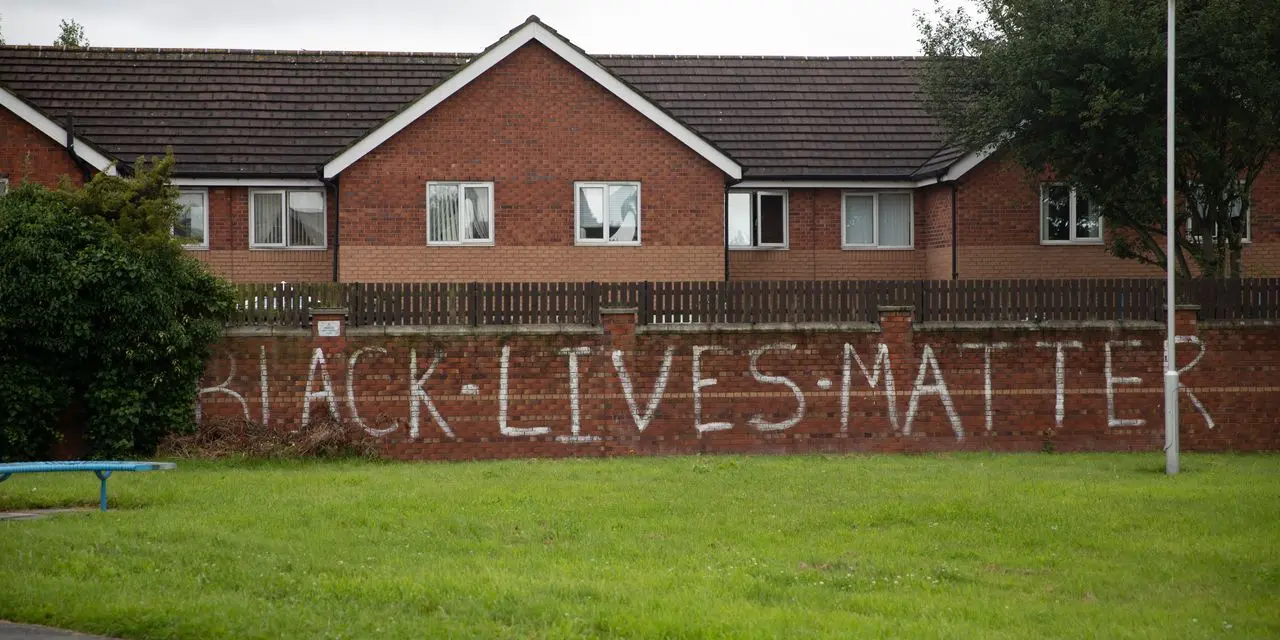 BLACK·LIVES·MATTER